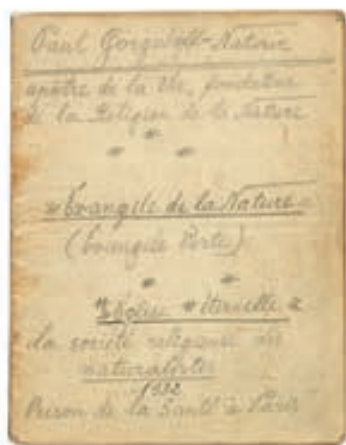 Paul Gorguloff-Nature
apôtre de la Vie, fondateur
de la Religion de la Nature
Evangile de la Nature
(Evangile Verte)
Eglise éternelle
la société religieuse des
naturalistes
1932
Prison de la Santé à Paris